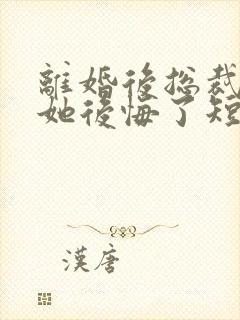 離婚後总裁
她後悔了短
漢唐